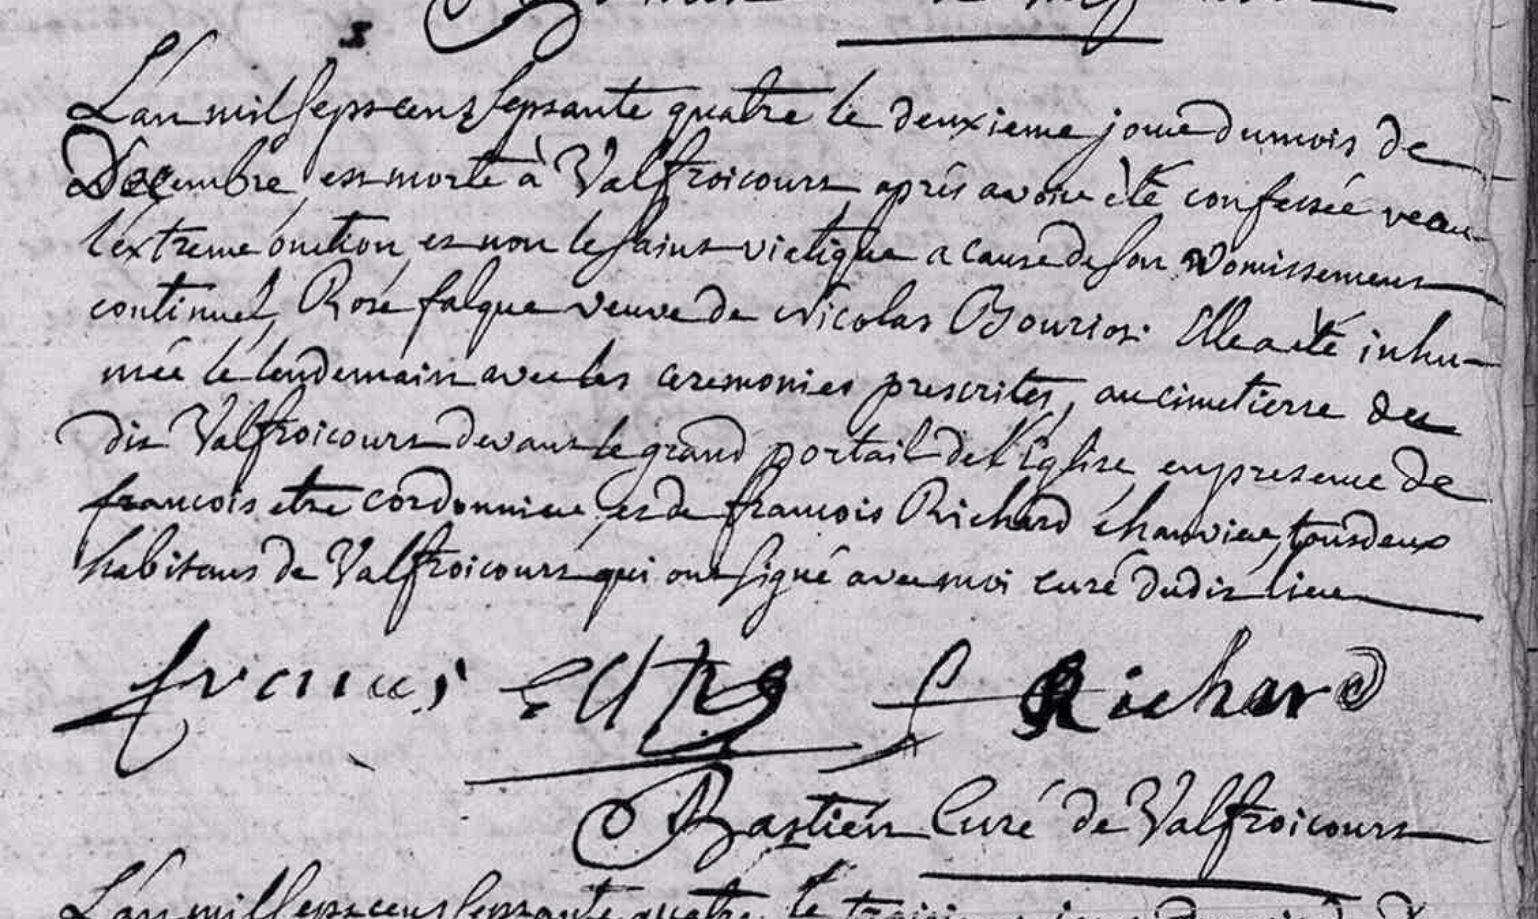 L'an mil sept cent septante quatre le deuxieme jour du mois de
Decembre, est morte à Valfroicourt, aprés avoir èté confessée recu
l'extreme onction, et non le saint viatique a cause de son vomissement
continuel, Rose falque veuve de Nicolas Bouriot. Elle a èté inhu-
mée le lendemain avec les ceremonies prescrites, au cimetierre du
dit Valfroicourt devant le grand portail de l'Eglise, en presence de
francois etre cordonnier, et de francois Richard chanvier, tous deux
habitans de Valfroicourt qui ont signé avec moi curé dudit lieu
francois f Richard
Bastien Curé de Valfroicourt
L'an mil sept cent septante quatre le